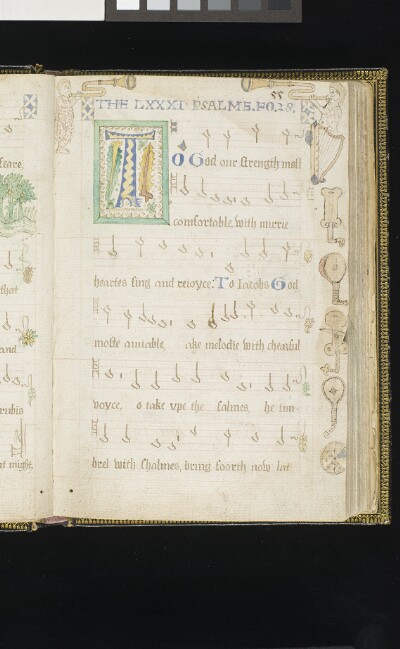 feare,
that
and
rubis
at might,
55
THE LXXXI PSALME. FO. 28.
TO God our strength most
comfortable, with merrie
heartes sing and reioyce: To Iacobs God
moste amiable, ake melodie with chearful
voyce, o take vpe the salmes, he tim-
brel with shalmes, bring foorth now let